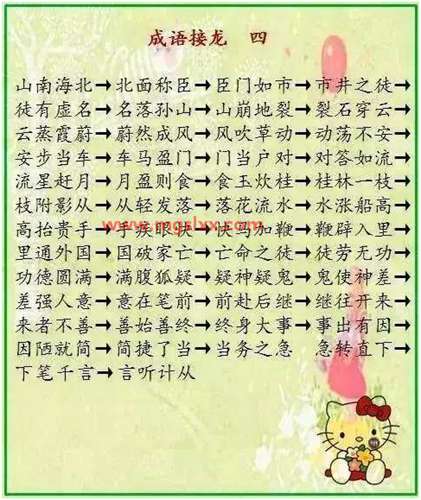 成语接龙 四
山南海北→北面称臣→臣门如市→市井之徒→
徒有虚名→名落孙山→山崩地裂→裂石穿云→
云蒸霞蔚→蔚然成风→风吹草动→动荡不安→
安步当车→车马盈门→门当户对→对答如流→
流星赶月→月盈则食→食玉炊桂→桂林一枝→
枝附影从→从轻发落→落花流水→水涨船高→
高抬贵手→手疾眼快→快马加鞭→鞭辟入里→
里通外国→国破家亡→亡命之徒→徒劳无功→
功德圆满→满腹狐疑→疑神疑鬼→鬼使神差→
差强人意→意在笔前→前赴后继→继往开来→
来者不善→善始善终→终身大事→事出有因→
因陋就简→简捷了当→当务之急 急转直下→
下笔千言→言听计从